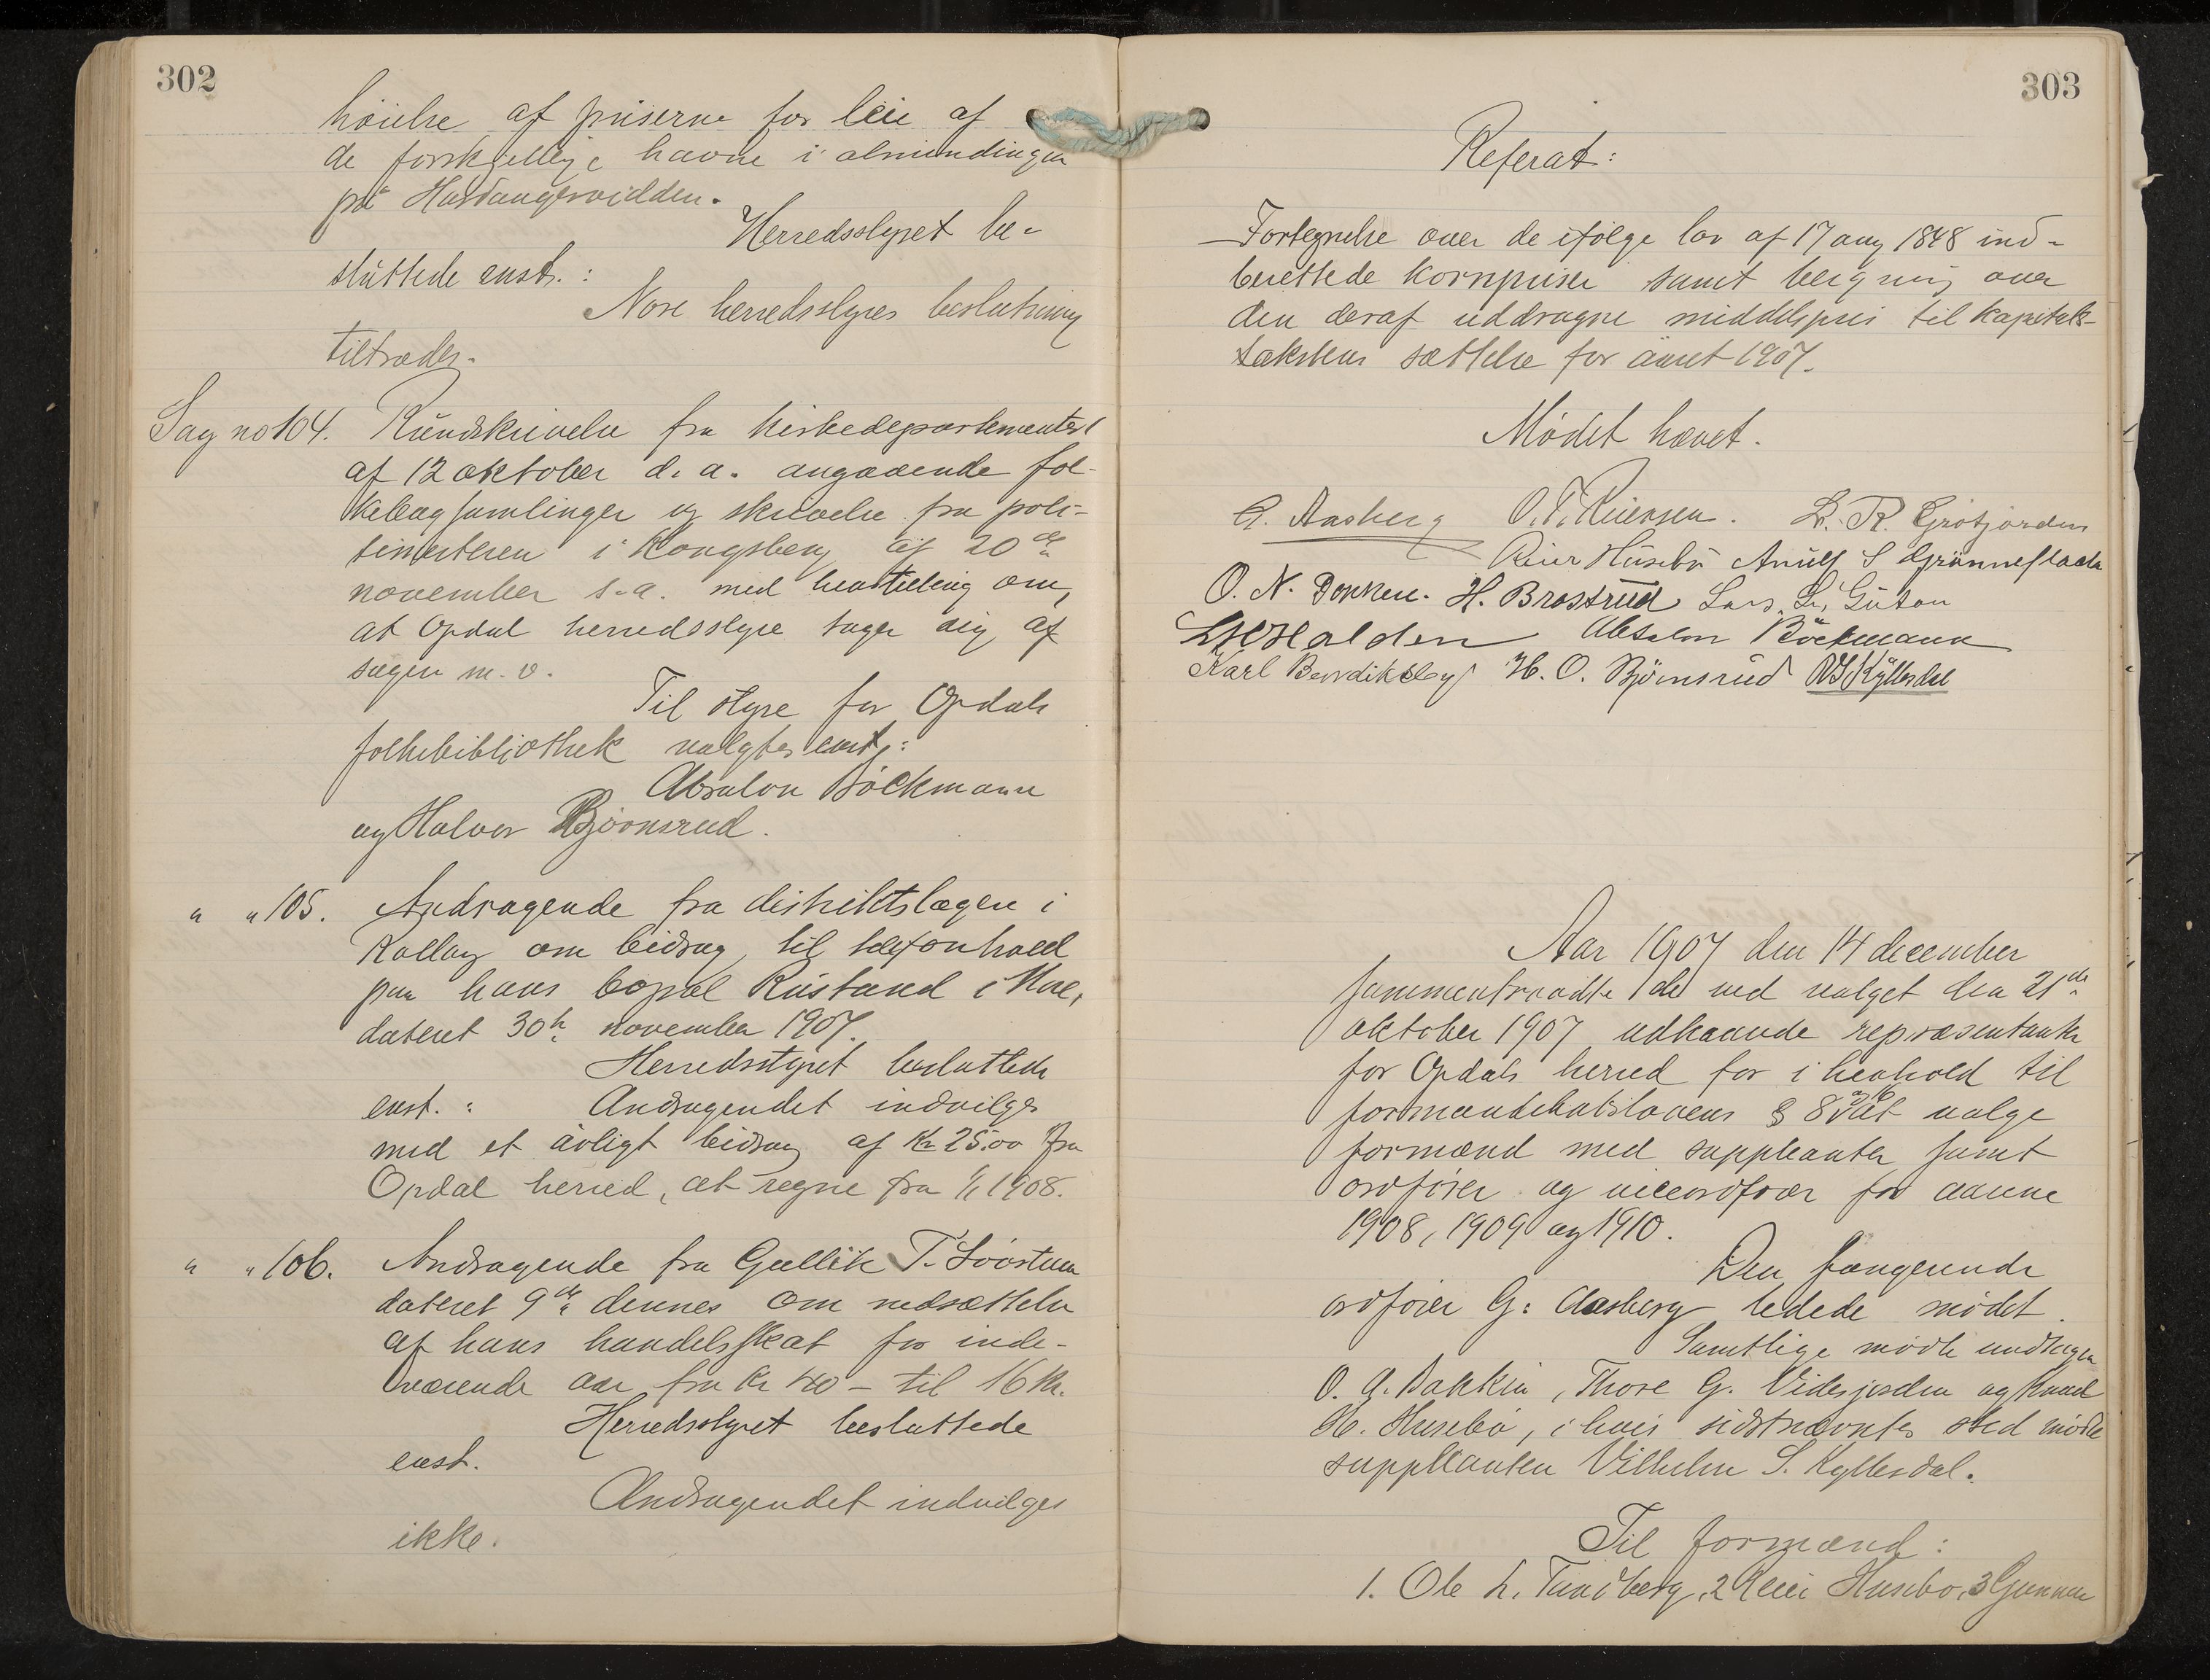 302
høielse af priserne for leie af
de forskjellige havne i almindingen
på Hardangervidden.
Herredsstyret be-
sluttede enst.:
Nore herredsstyres beslutning
tiltrædes.
Sag no 104. Rundskrivelse fra kirkedepartementet
af 12 oktober d. a. angaaende fol-
kebogsamlinger og skrivelse fra poli-
timesteren i Kongsberg af 20de
november s. a. med henstilling om,
at Opdal herredsstyre tager sig af
sagen m. v.
Til styre for Opdals
folkebibliothek valgtes enst.:
Absalon Böckmann
og Halvor Bjørnsrud.
" " 105. Andragende fra distriktslægen i
Rollag om bidrag til telefonhold
paa hans bopæl Rustand i Nore,
dateret 30te november 1907.
Herredsstyret besluttede
enst.: Andragendet indvilges
med et årligt bidrag af Kr 25.00 fra
Opdal herred, at regne fra 1/1 1908.
" " 106. Andragende fra Gullik T.
dateret 9de dennes om nedsættelse
af hans handelsskat for inde-
værende aar fra Kr 40 – til 16 Kr.
Herredsstyret besluttede
enst.
Andragendet indvilges
ikke.
303
Referat:
Fortegnelse over de ifølge lov af 17 aug 1848 ind-
berettede kornpriser samt beregning over
den deraf uddragne middelpris til kapitels-
takstens sættelse for aaret 1907.
Mødet hævet.
G. Aasberg O. T. L. R. Grøtjorden
Reier Husebø S Grønneflaata
O. N. H. Brostrud Lars L.
Halden Absalon Böckmann
Karl Bendiksby H. O. Bjørnsrud V S Kyllesdal
Aar 1907 den 14 december
sammentraadte de ved valget den 21de
oktober 1907 udkaarede repræsentanter
for Opdals herred for i henhold til
formandskabslovens § 8 at valge
formænd med suppleanter samt
ordfører og viceordfører for aarene
1908, 1909 og 1910.
Den fungerende
ordfører G. Aasberg ledede mødet.
Samtlige mødte undtagen
O. G. Bakkin, Thore G. Vidsjorden og Knud
H. Husebø, i hvis sidstnævntes sted mødte
suppleanten Vilhelm S. Kyllesdal.
Til formænd:
1. Ole L. Tundberg, 2 Reier Husebø, 3 Gunnar